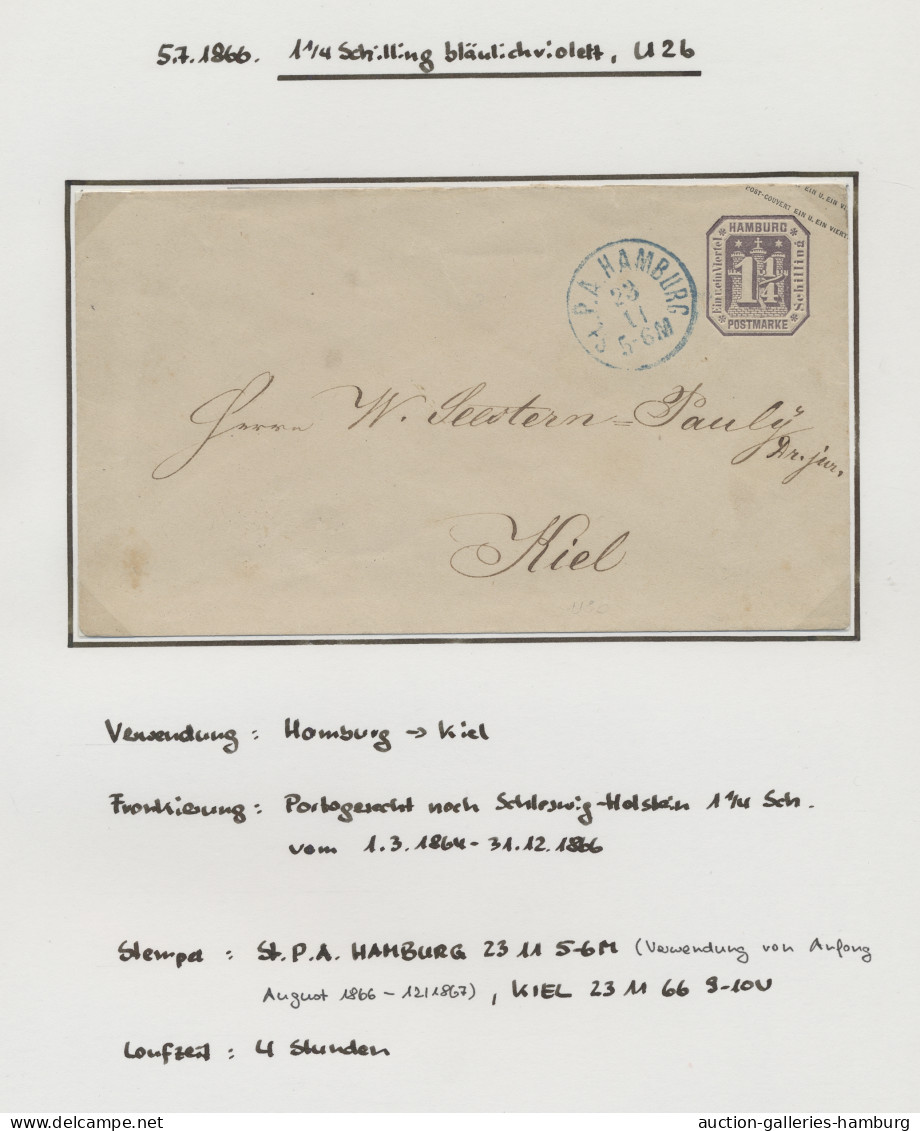 5.7.1866. 1 1/4 Schilling bläulichviolett, U 26
POST-COUVERT EIN U. EIN VIERT
EIN U. EIN VI
HAMBURG
Ein u. ein Viertel
1 1/4
Schilling
POSTMARKE
St. P. A. HAMBURG
23
11
5-6M
Herrn W. Seestern=Pauly
Dr. jur.
Kiel
Verwendung : Hamburg → Kiel
Frankierung : Portogerecht nach Schleswig-Holstein 1 1/4 Sch.
vom 1.3.1864 - 31.12.1866
Stempel : St. P.A. HAMBURG 23 11 5-6M (Verwendung von Anfang
August 1866 - 12/1867), KIEL 23 11 66 9-10U
Laufzeit : 4 Stunden
auction-galleries-hamburg